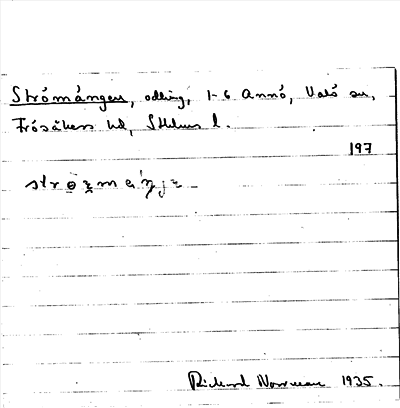 Strömängen, odling, 1-6 Annö, Valö sn,
Frösåkers hd, Sthlms l.
197
Rickard Norrman 1935.